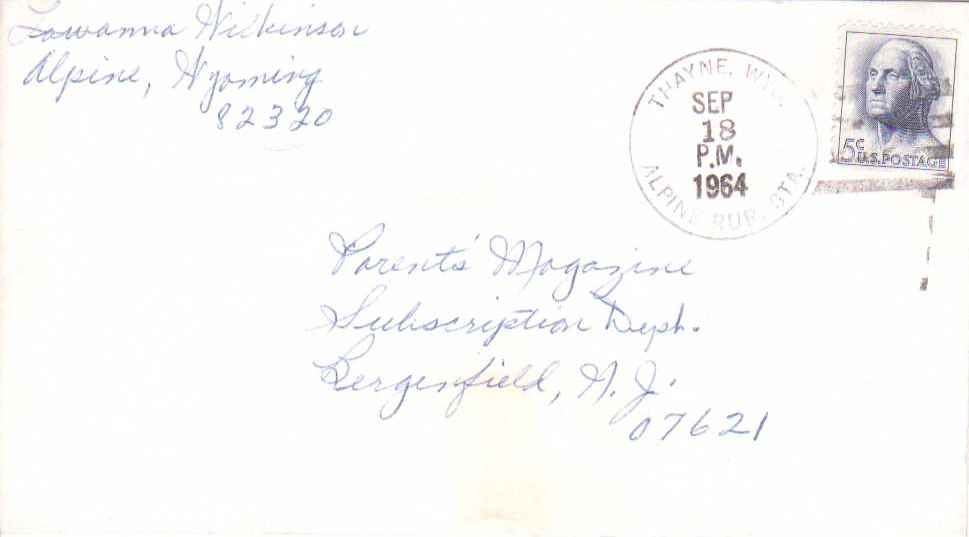 Lowanna Wilkinson
Alpine, Wyoming
82320
THAYNE, WYO.
SEP
18
P.M.
1964
ALPINE RUR. STA.
5c
U.S. POSTAGE
Parent's Magazine
Subscription Dept.
Bergenfield, N. J.
07621